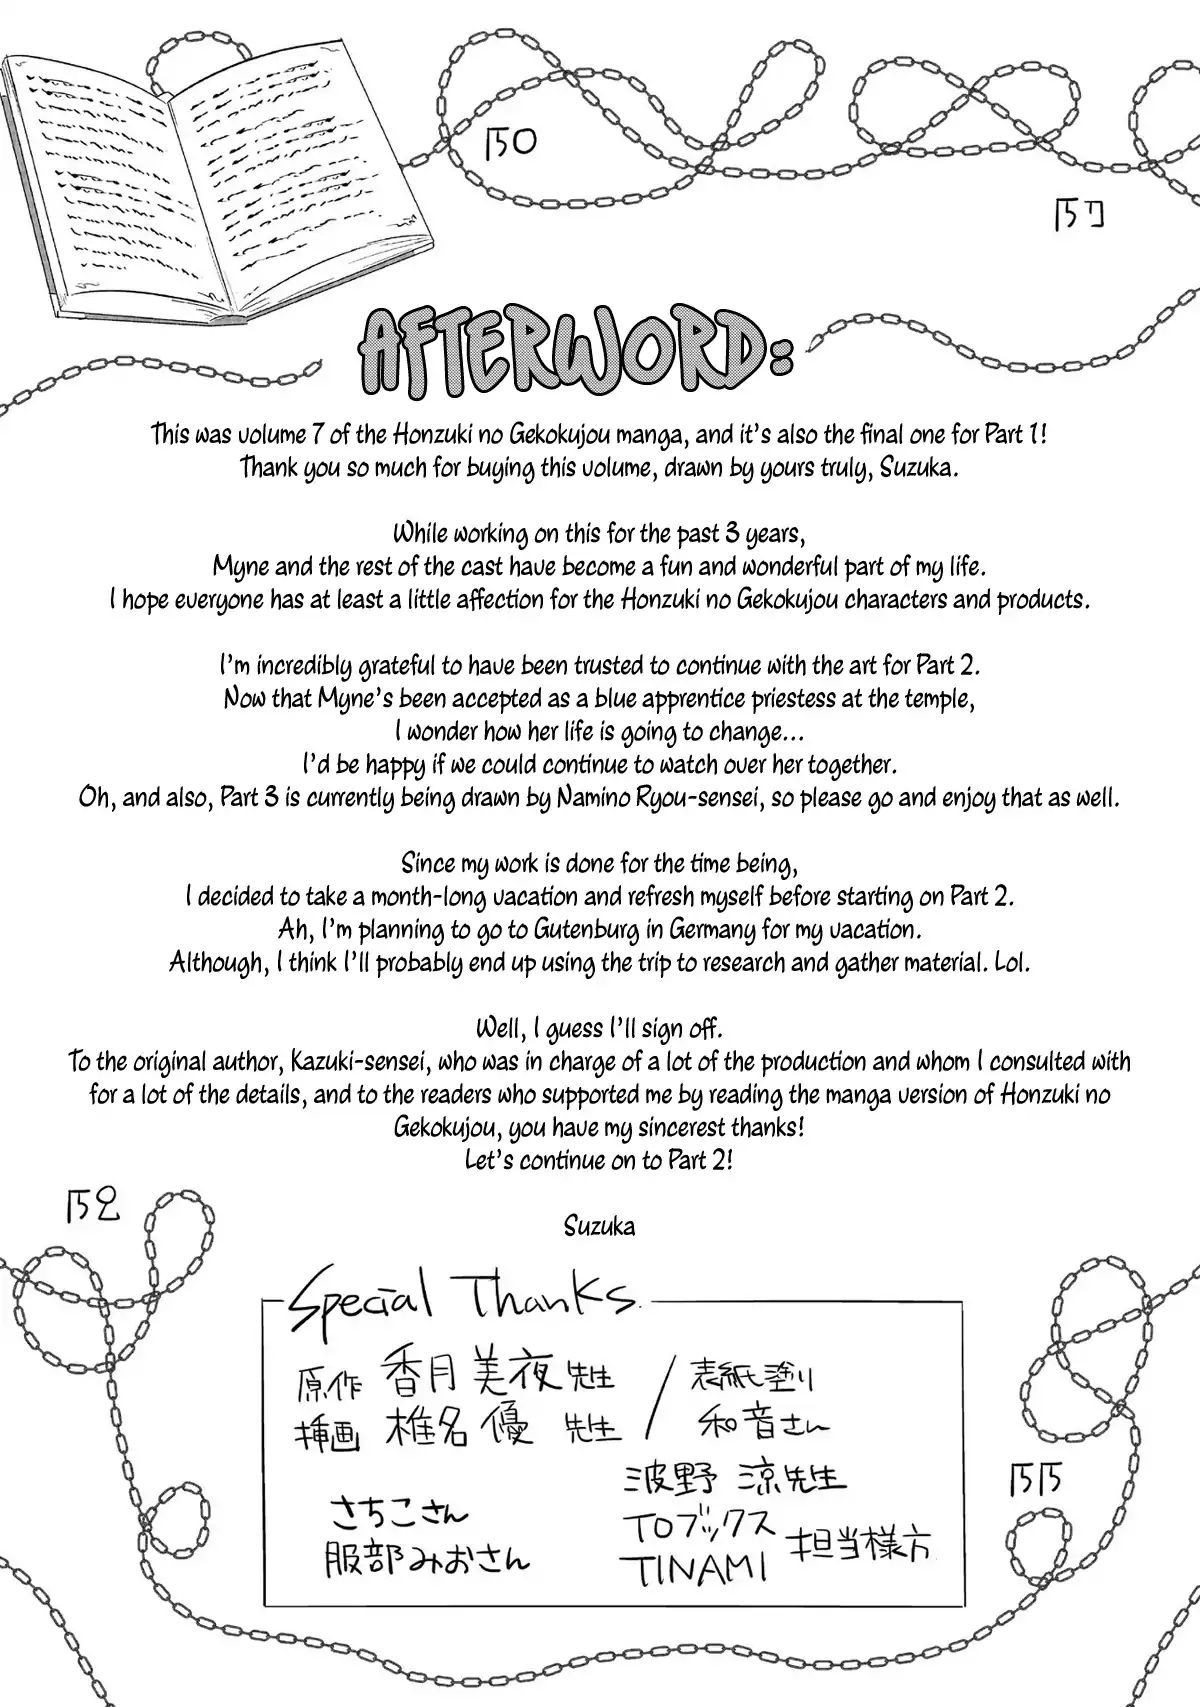 AFTERWORD:
This was volume 7 of the Honzuki no Gekokujou manga, and it's also the final one for Part 1!
Thank you so much for buying this volume, drawn by yours truly, Suzuka.
While working on this for the past 3 years,
Myne and the rest of the cast have become a fun and wonderful part of my life.
I hope everyone has at least a little affection for the Honzuki no Gekokujou characters and products.
I'm incredibly grateful to have been trusted to continue with the art for Part 2.
Now that Myne's been accepted as a blue apprentice priestess at the temple,
I wonder how her life is going to change...
I'd be happy if we could continue to watch over her together.
Oh, and also, Part 3 is currently being drawn by Namino Ryou-sensei, so please go and enjoy that as well.
Since my work is done for the time being,
I decided to take a month-long vacation and refresh myself before starting on Part 2.
Ah, I'm planning to go to Gutenburg in Germany for my vacation.
Although, I think I'll probably end up using the trip to research and gather material. Lol.
Well, I guess I'll sign off.
To the original author, Kazuki-sensei, who was in charge of a lot of the production and whom I consulted with
for a lot of the details, and to the readers who supported me by reading the manga version of Honzuki no
Gekokujou, you have my sincerest thanks!
Let's continue on to Part 2!
Suzuka
Special Thanks
原作 香月美夜先生 / 表紙塗り
挿画 椎名優 先生 和音さん
波野 涼先生
さちこさん TOブックス
服部みおさん TINAMI 担当様方